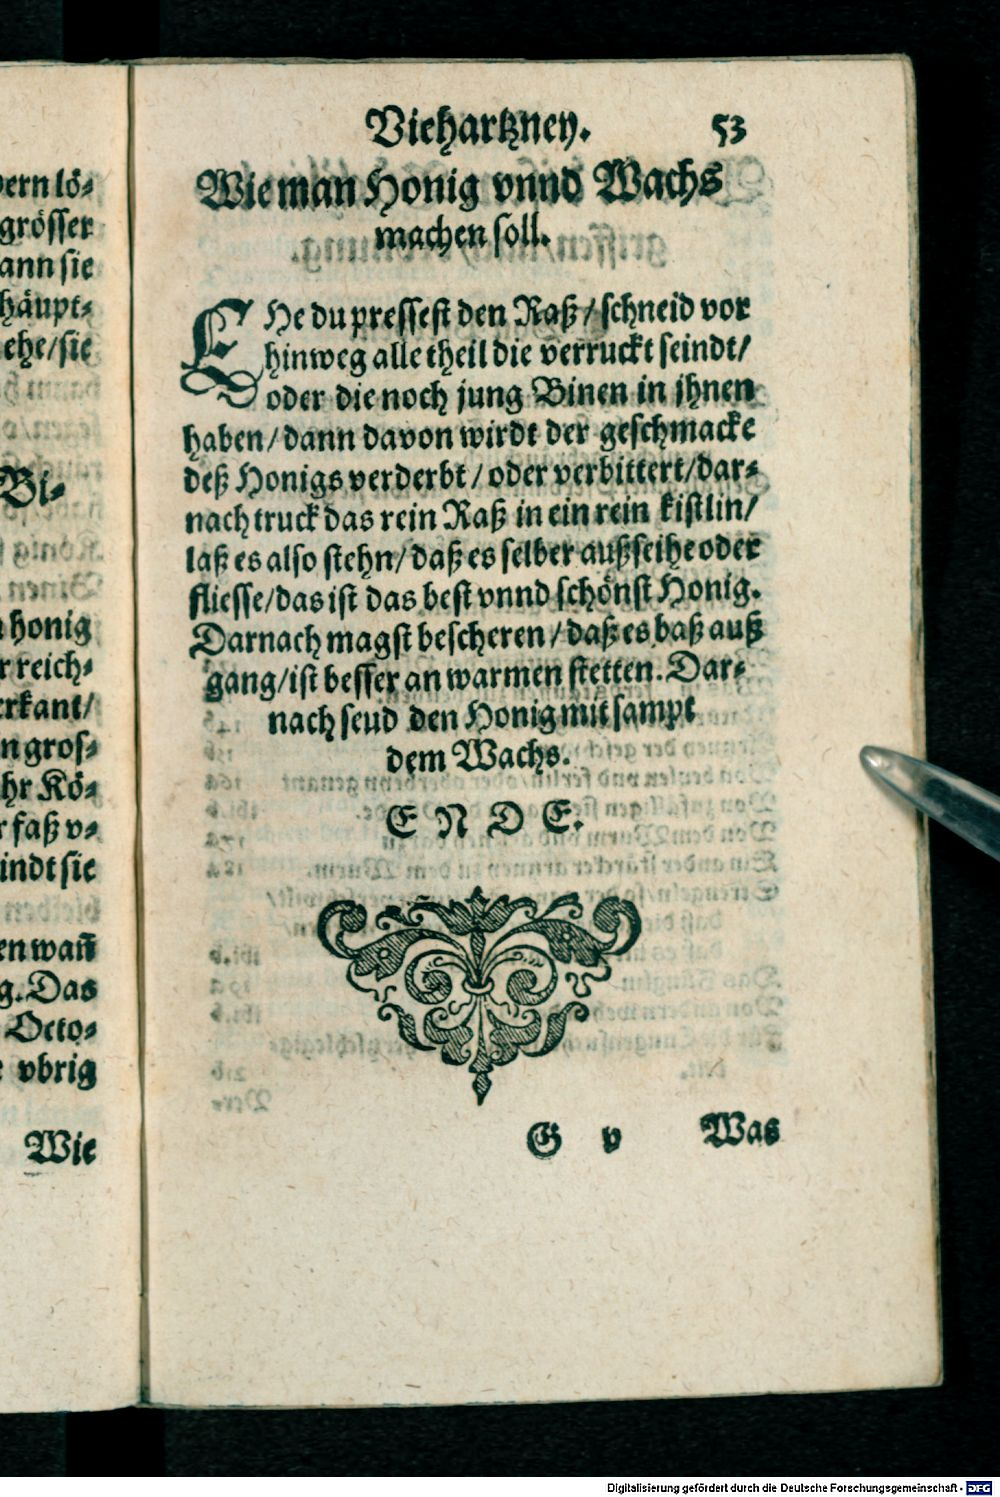 dern lö-
grösser
ann sie
häupt-
ehe/sie
Bi-
honig
r reich-
erkant/
n gros-
hr Kö-
r faß v-
indt sie
en wañ
g. Das
Octo-
vbrig
Wie
Viehartzney. 53
Wie man Honig vnnd Wachs
machen soll.
EHe du pressest den Raß/schneid vor
hinweg alle theil die verruckt seindt/
oder die noch jung Binen in jhnen
haben/dann davon wirdt der geschmacke
deß Honigs verderbt/oder verbittert/dar-
nach truck das rein Raß in ein rein kistlin/
laß es also stehn/daß es selber außseihe oder
fliesse/das ist das best vnnd schönst Honig.
Darnach magst bescheren/daß es baß auß
gang/ist besser an warmen stetten. Dar-
nach seud den Honig mit sampt
dem Wachs.
E N D E.
G v Was
Digitalisierung gefördert durch die Deutsche Forschungsgemeinschaft - DFG